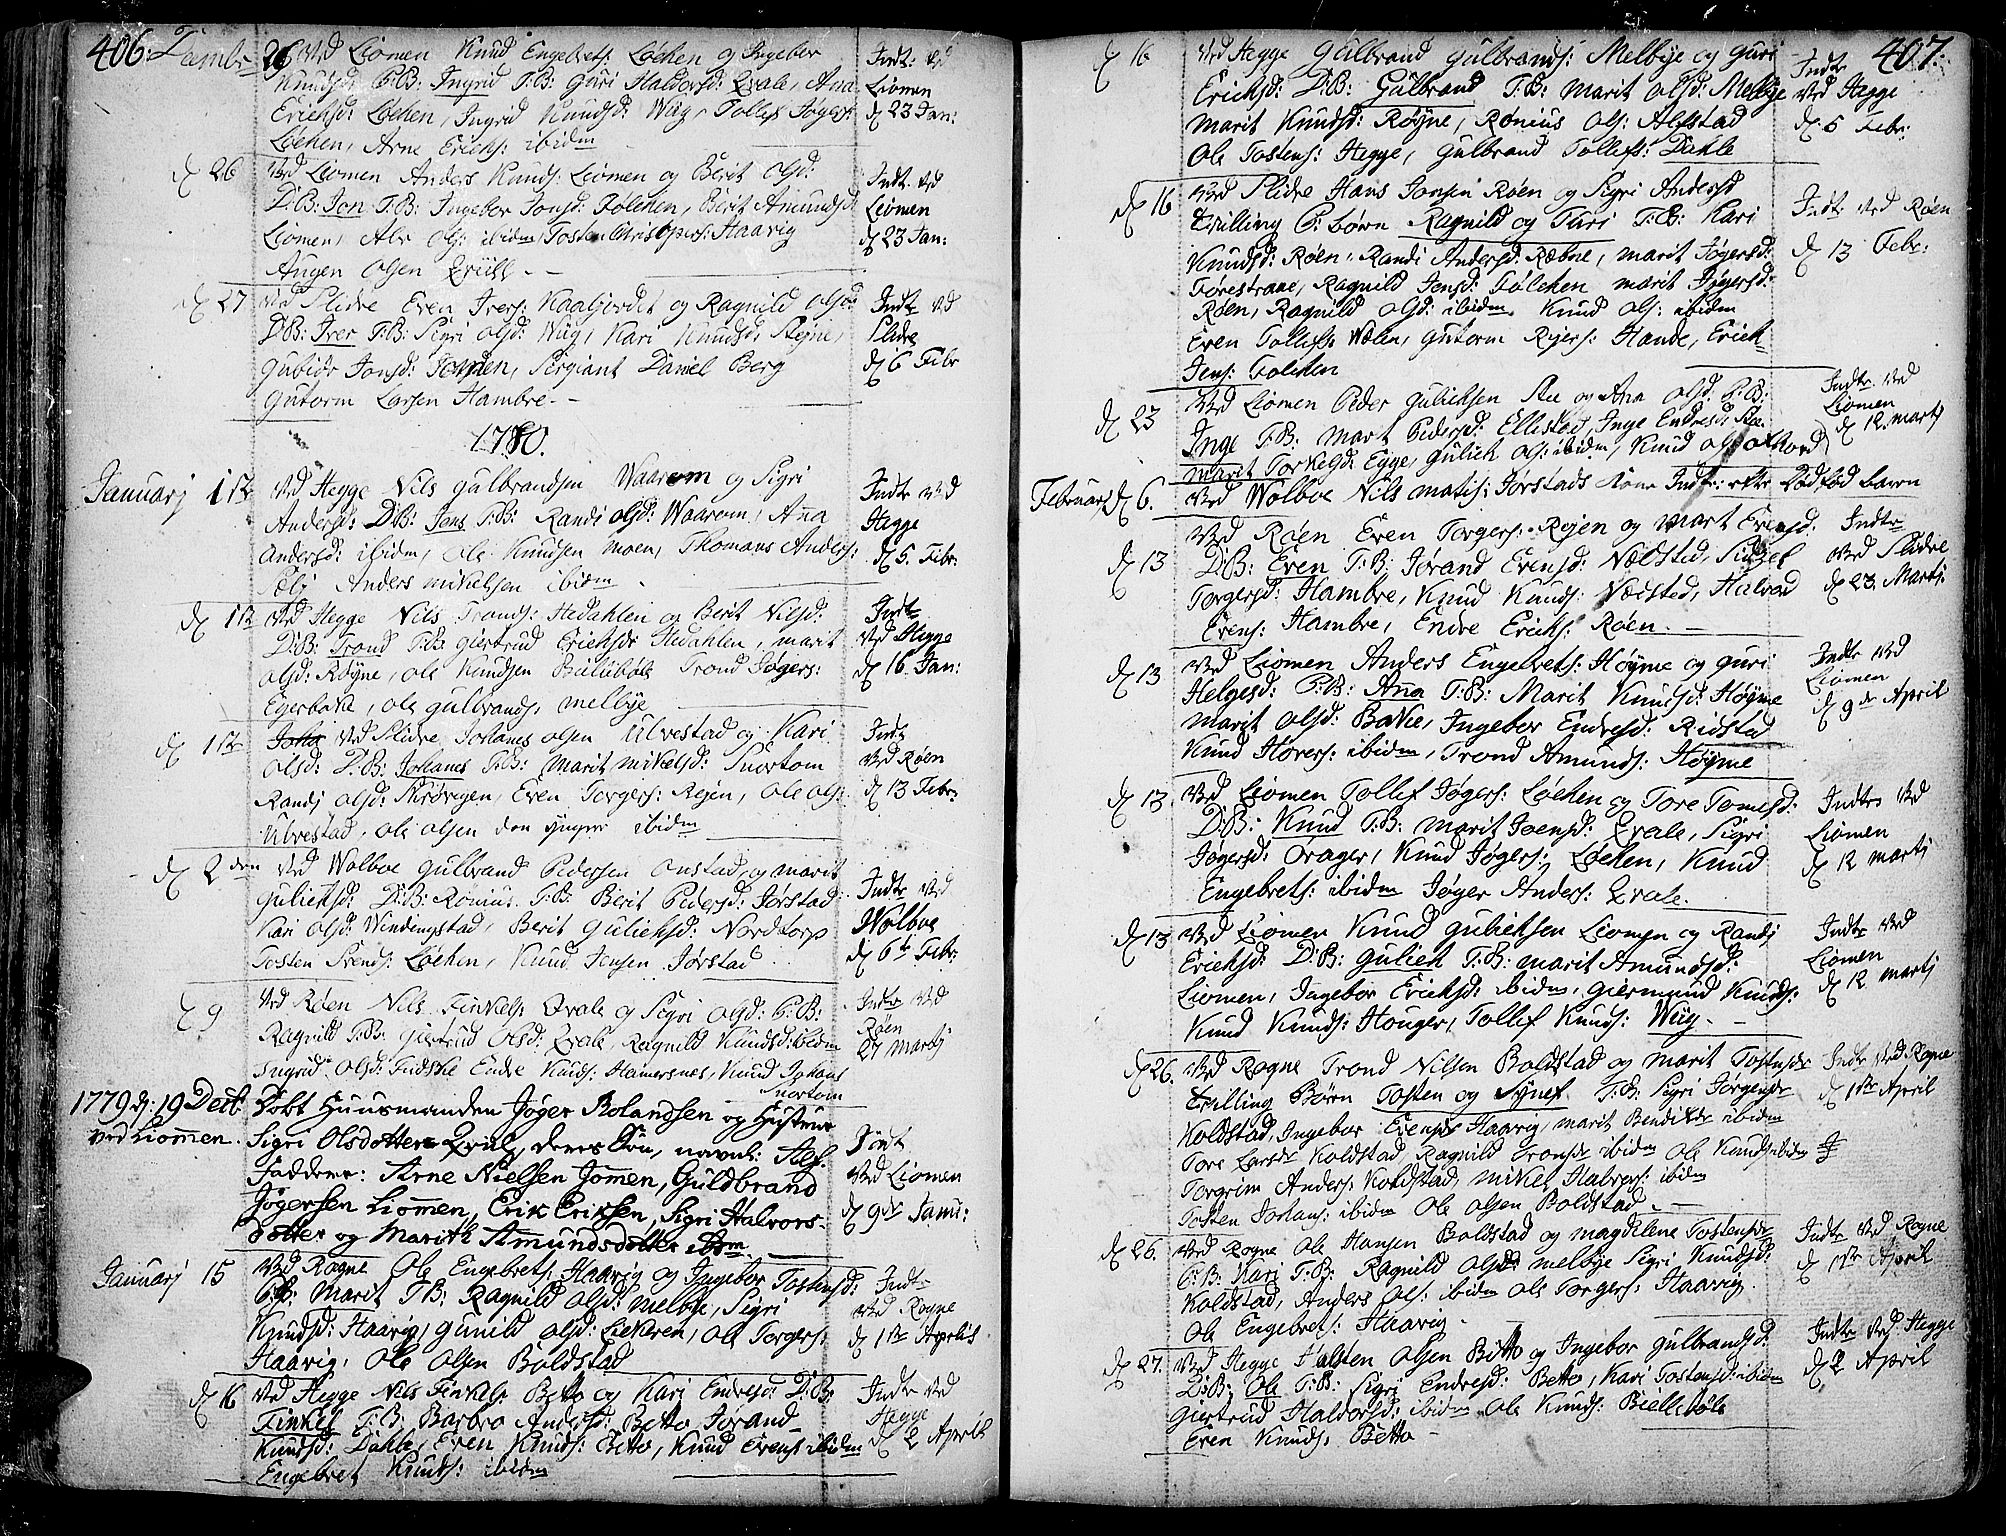 406.
26 Ved Liomen Knud Engebrets: Løchen og Ingebor
Knudsd: P:B: Ingrid T:B: Guri Haldorsd: Qvale, Ana
Ericksd: Løchen, Ingrid Knudsd: Wüg, Tollef Jøgers:
Løchen, Arne Ericks: ibidm
Indt: ved
Liomen
d 23 Jan:
d 26 Ved Liomen Anders Knuds: Liomen og Berit Olsd:
D:B: Jon T:B: Ingebor Jonsd: Følchen, Berit Amundsd:
Liomen, Ols: ibidm Tosten Christophers: Haavig
Augen Olsen
Indt: ved
Liomen
d 23 Jan:
d 27 ved Slidre Even Ivers: Kaaljordet og Ragnild Olsd:
D:B: Iver T:B: Sigri Olsd: Wüg, Kari Knudsd:
Jonsd: Sergiant Daniel Berg
Gutorm Larsen Hambre.
Indt: ved
Slidre
d 6 Febr
1780.
Januarj 1ste Ved Hegge Nils Gulbrandsen Waarom og Sigri
Andersd: D:B: Jens T:B: Randi Olsd: Waarom, Ana
Andersd: ibidm, Ole Knudsen Moen, Thomas Anders:
Anders Mikelsen ibidm
Indt: ved
Hegge
d 5. Febr:
d 1ste Ved Hegge Nils Tronds: Hedahlen og Berit Nilsd:
D:B: Trond T:B: Giertrud Ericksd: Hedahlen, marit
Olsd: Røyne, Ole Knudsen Biellebøle Trond Jøgers:
Egerbake, Ole Gulbrands: Melbye
Indt:
ved Hegge
d 16 Jan:
d 1ste ved Slidre Johanes Olsen Ulvestad og Kari
Olsd: D:B: Johanes T:B: Marit Mikelsd: Snortom
Randj Olsd: Even Torgers: Rejen, Ole Ols:
Ulvestad, Ole Olsen den yngere ibidm
Indt
ved Røen
d 13 Febr:
d 2den Ved Wolboe Gulbrand Pedersen Onstad og marit
Gulicksd: D:B: Romius T:B: Berit Pedersd: Jørstad
Kari Olsd: Windingstad, Berit Gulicksd: Nordtorp
Tosten Svends: Løchen, Knud Jensen Jørstad
Indt: ved
Wolboe
d 6te Febr:
d 9 Ved Røen Nils Finkels: Qvale og Sigri Olsd: P:B:
Ragnild T:B: Giertrud Olsd: Qvale, Ragnild Knudsd: ibidm
Ingrid Olsd: Endre Knuds: Hamersnes, Knud Johans
Snortom
Indt: ved
Røen
27 Martj
1779 d: 19 Decbr: Døbt Huusmanden Jøger Rolandsen og Hustrue
ved Liomen. Sigri Olsdotter Qvale, deres Søn, navnl: Alf.
Faddere: Arne Nielsen Jomen, Guldbrand
Jøgersen Liomen, Erik Eriksen, Sigri Halvors-
dotter og Marith Amundsdotter ibm.
Jndt
ved Liomen
d 9de Janu:
Januarj 15 Ved Rogne Ole Engebrets: Haavig og Ingebor Tostensd:
P:B: Marit T:B: Ragnild Olsd: Melbye, Sigri
Knudsd: Haavig, Gunild Olsd: Ole Torgers:
Haavig, Ole Olsen Boldstad
Indt:
ved Rogne
d 1ste Aprilis
d 16 Ved Hegge Nils Finkels: Betto og Kari Endresd: D:B:
Finkel T:B: Barbro Andersd: Betto Jørand
Knudsd: Dahle, Even Knuds: Betto, Knud Evens: ibidm
Engebret Knuds: ibidm
Indt: ved
Hegge
d 2 Aprili
407.
d 16 Ved Hegge Gulbrand Gulbrands: Melbye og Guri
Ericksd: D:B: Gulbrand T:B: marit Olsd: Melbye
Marit Knudsd: Røyne, Romius Ols: Alfstad
Ole Tostens: Hegge, Gulbrand Tollefs: Dahle
Indt:
ved Hegge
d: 5 Febr:
d 16 Ved Slidre Hans Jonsen Røen og Sigri Andersd
Tvilling P: børn Ragnild og Turi T:B: Kari
Knudsd: Røen, Randi Andersd: Ræbne, marit Jøgersd:
Forestrane, Ragnild Jensd: Følchen marit Jøgersd:
Røen, Ragnild Olsd: ibidm, Knud Ols: ibidm
Even Tollefs: Wølen, Gutorm Rejers: Hande, Erick
Jens: Følchen
Indt: ved Røen
d 13 Febr:
d 23 Ved Liomen Peder Gulicksen Stee og Ana Olsd: P:B:
Inge T:B: Marit Pedersd: Ellestad, Inge Endresd: Stee
marit Torkelsd: Egge, Gulick Ols: ibidm, Knud Ols:
Indt: ved
Liomen
d 12 martj
Februarj d 6. Ved Wolboe Nils Matis: Jørstads Kone Indt: efter dødfød barn
d 13 Ved Røen Even Torgers: Rejen og Marit Evensd:
D:B: Even T:B: Jørand Evensd: Nælstad, Sidzel
Torgersd: Hambre, Knud Knuds: Næstad, Halvod
Evens: Hambre, Endre Ericks: Røen.
Indt:
ved Slidre
d 23. Martj:
d 13 Ved Liomen Anders Engebrets: Høyme og Guri
Helgesd: P:B: Ana T:B: Marit Knudsd: Høyme
Marit Olsd: Bake, Ingebor Endresd: Ridstad
Knud Hovers: ibidm, Trond Amunds: Høyme
Indt: ved
Liomen
d 9de April
d 13. Ved Liomen Tollef Jøgers: Løchen og Tore Tomesd:
D:B: Knud T:B: Marit Joensd: Qvale, Sigri
Jøgersd: Knud Jøgers: Løchen, Knud
Engebrets: ibidm Jøger Anders: Qvale.
Indt: ved
Liomen
d 12 martj
d 13 Ved Liomen Knud Gulicksen Liomen og Randj
Ericksd: D:B: Gulick T:B: marit Amundsd:
Liomen, Ingebor Ericksd: ibidm, Giermund Knuds:
Knud Knuds: Houger, Tollef Knuds: Wüg.
Indt: ved
Liomen
d 12 martj
d 26. Ved Rogne Trond Nilsen Boldstad og Marit Tostensdr
Tvilling Børn Tosten og Synef T:B: Sigri Jørgensdr
Koldstad, Ingebor Evensdr Haavig, marit Bendiktsdr ibidm
Tore Larsdr Koldstad Ragnild Tronsdr ibidm Ole Knuds: ibidm
Torgrim Anders: Koldstad, Mikel Halvors: ibidm
Tosten Johans: ibidm Ole Olsen Boldstad
Indt: ved Rogne
d 1ste April
d 26. Ved Rogne Ole Hansen Boldstad og Magdelene Tostensdr
P:B: Kari T:B: Ragnild Olsd: Melbye Sigri Knudsd:
Koldstad, Anders Ols: ibidm Ole Torgers: Haavig
Ole Engebrets: Haavig
Indt: ved Rogne
d 1ste April
d 27. Ved Hegge Halsten Olsen Betto og Ingebor Gulbrandsd:
D:B: Ole T:B: Sigri Endresd: Betto, Kari Tostensd: ibidm
Giertrud Haldorsd: ibidm Ole Knuds: Biellebøle
Even Knuds: Betto
Indt: ved Hegge
d 2 April